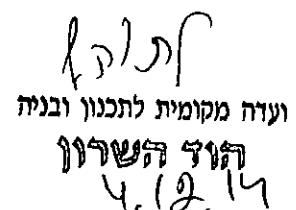 לתוקף
ועדה מקומית לתכנון ובניה
הוד השרון
4.12.14